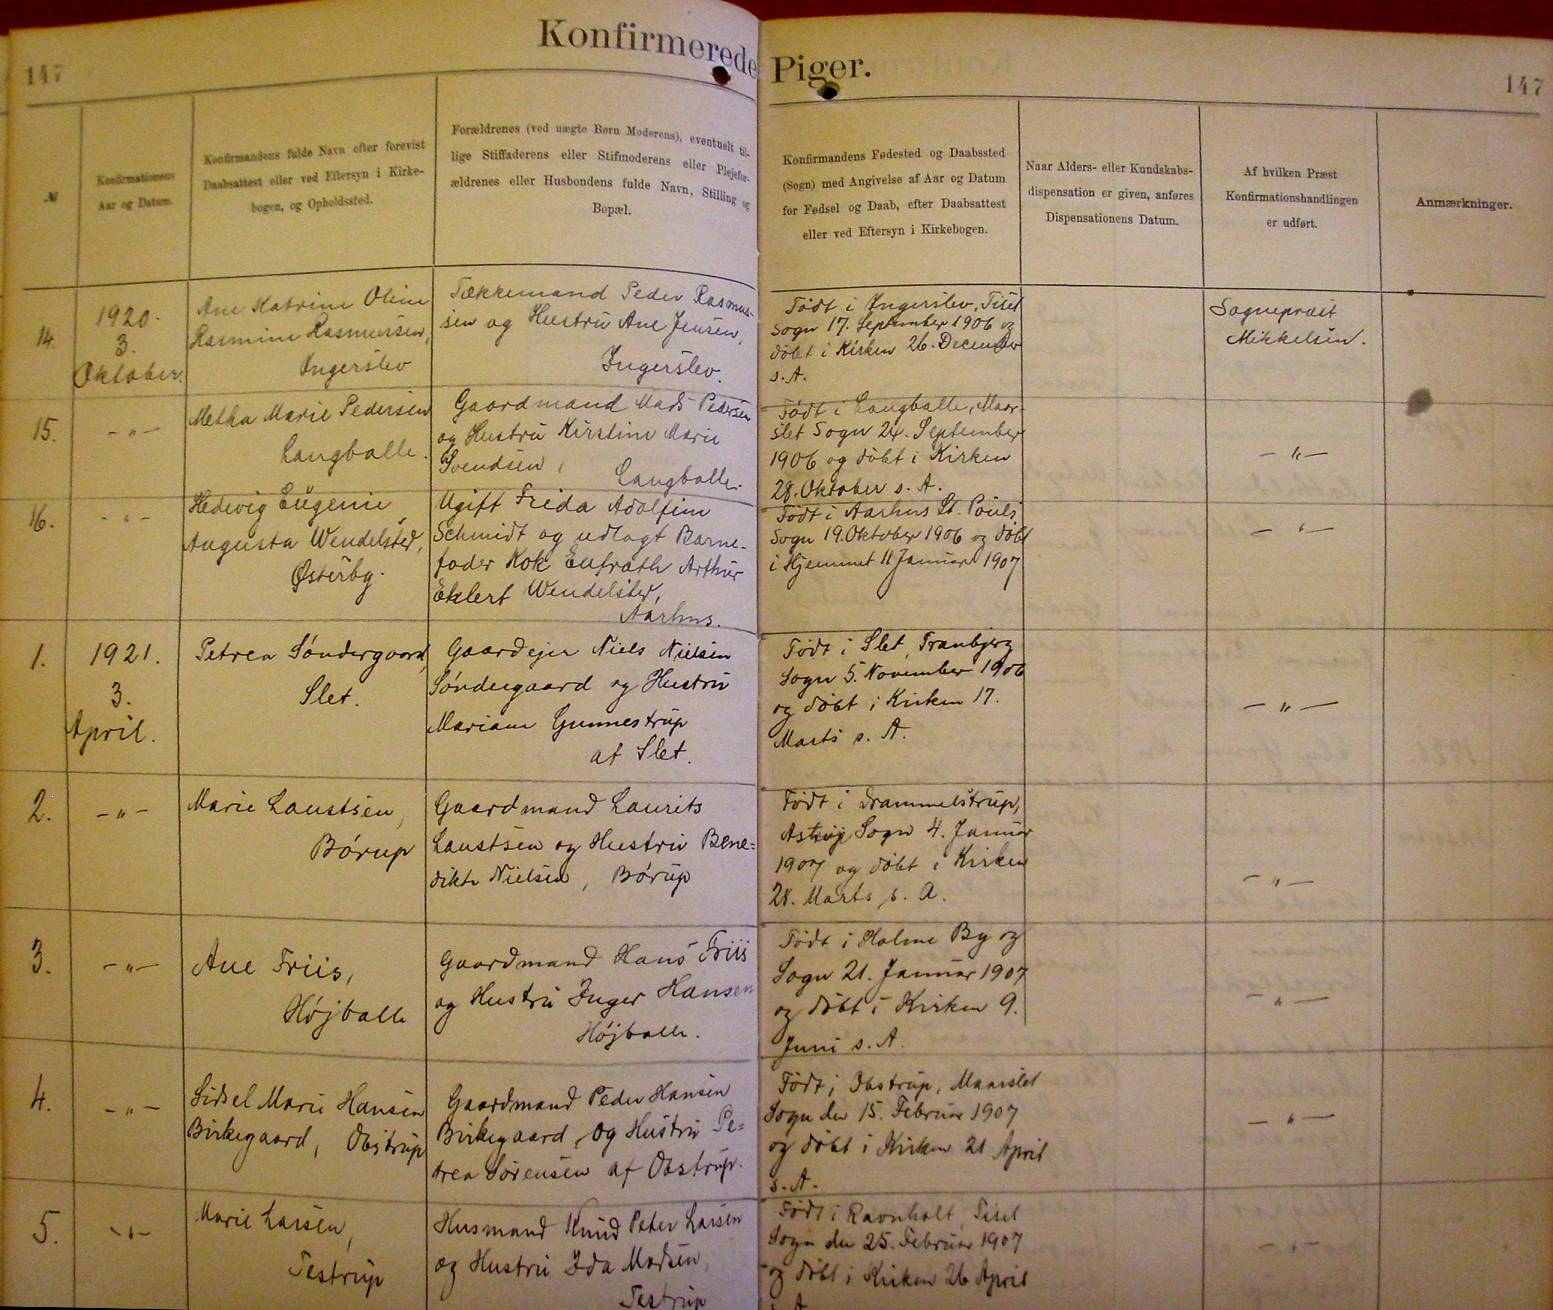 Konfirmerede Piger.
147
147
№
Konfirmationens
Aar og Datum.
Konfirmandens fulde Navn efter forevist
Daabsattest eller ved Eftersyn i Kirke-
bogen, og Opholdssted.
Forældrenes (ved uægte Børn Moderens), eventuelt til-
lige Stiffaderens eller Stifmoderens eller Plejefor-
ældrenes eller Husbondens fulde Navn, Stilling og
Bopæl.
Konfirmandens Fødested og Daabssted
(Sogn) med Angivelse af Aar og Datum
for Fødsel og Daab, efter Daabsattest
eller ved Eftersyn i Kirkebogen.
Naar Alders- eller Kundskabs-
dispensation er given, anføres
Dispensationens Datum.
Af hvilken Præst
Konfirmationshandlingen
er udført.
Anmærkninger.
14.
1920.
3.
Oktober.
Ane Katrine Oline
Rasmine Rasmussen,
Ingerslev
Tækkemand Peder Rasmus-
sen og Hustru Ane Jensen,
Ingerslev.
Født i Ingerslev, Tiset
Sogn 17. September 1906 og
døbt i Kirken 26. December
s. A.
Sognepræst
Mikkelsen.
15.
-"-
Metha Marie Pedersen
Langballe.
Gaardmand Mads Pedersen
og Hustru Kirstine Marie
Svendsen,
Langballe.
Født i Langballe, Maar-
slet Sogn 24. September
1906 og døbt i Kirken
28. Oktober s. A.
-"-
16.
-"-
Hedevig Eugenie
Augusta Wendelsted,
Østerby.
Ugift Frida Adolfine
Schmidt og udlagt Barne-
fader Kok Eufrath Arthur
Eklert Wendelsted,
Aarhus.
Født i Aarhus St. Pouls
Sogn 19. Oktober 1906 og døbt
i Hjemmet 11 Januar 1907
-"-
1.
1921.
3.
April.
Petrea Søndergaard,
Slet.
Gaardejer Niels Nielsen
Søndergaard og Hustru
Mariane Gunnestrup
af Slet.
Født i Slet, Tranbjerg
Sogn 5. November 1906
og døbt i Kirken 17.
Marts s. A.
-"-
2.
-"-
Marie Laustsen,
Børup
Gaardmand Laurits
Laustsen og Hustru Bene=
dikte Nielsen, Børup
Født i Drammelstrup,
Sogn 4. Januar
1907 og døbt i Kirken
28. Marts s. A.
-"-
3.
-"-
Ane Friis,
Højballe
Gaardmand Hans Friis
og Hustru Inger Hansen
Højballe.
Født i Holme By og
Sogn 21. Januar 1907
og døbt i Kirken 9.
Juni s. A.
-"-
4.
-"-
Sidsel Marie Hansen
Birkegaard, Obstrup
Gaardmand Peder Hansen
Birkegaard, og Hustru Pe=
trea Sørensen af Obstrup.
Født i Obstrup, Maarslet
Sogn den 15. Februar 1907
og døbt i Kirken 21 April
s. A.
-"-
5.
-"-
Marie Larsen,
Testrup
Husmand Knud Peter Larsen
og Hustru Ida Madsen,
Testrup
Født i Ravnholt, Tiset
Sogn den 25. Februar 1907
og døbt i Kirken 26 April
s. A.
-"-